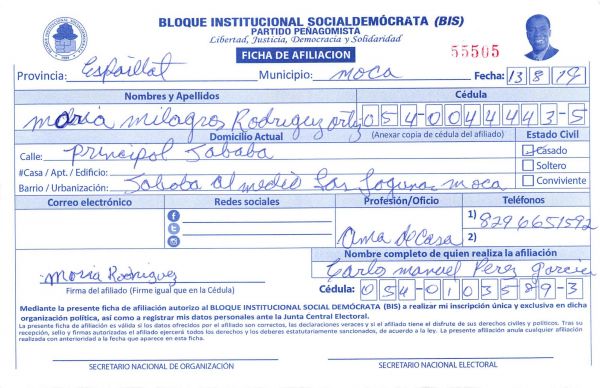 BLOQUE INSTITUCIONAL SOCIALDEMÓCRATA (BIS)
PARTIDO PEÑAGOMISTA
Libertad, Justicia, Democracia y Solidaridad
FICHA DE AFILIACION
55505
Provincia: Espaillat Municipio: moca Fecha: 13 8 19
Nombres y Apellidos Cédula
maria milagros Rodriguez ortiz 054-0044443-5
Domicilio Actual (Anexar copia de cédula del afiliado) Estado Civil
Calle: Principal Jababa Casado
#Casa / Apt. / Edificio: Soltero
Barrio / Urbanización: Jababa al medio Las Lagunas moca Conviviente
Correo electrónico Redes sociales Profesión/Oficio Teléfonos
1) 829 6651592
Ama de Casa 2)
Nombre completo de quien realiza la afiliación
Carlo manuel Perez garcia
Maria Rodriguez
Firma del afiliado (Firme igual que en la Cédula) Cédula: 054-0103589-3
Mediante la presente ficha de afiliación autorizo al BLOQUE INSTITUCIONAL SOCIAL DEMÓCRATA (BIS) a realizar mi inscripción única y exclusiva en dicha
organización política, así como a registrar mis datos personales ante la Junta Central Electoral.
La presente ficha de afiliación es válida si los datos ofrecidos por el afiliado son correctos, las declaraciones veraces y si el afiliado tiene el disfrute de sus derechos civiles y políticos. Tras su
recepción, sello y firmas autorizadas el afiliado ejercerá todos los derechos y los deberes estatutariamente sancionados, de acuerdo a la ley. La presente afiliación anula cualquier afiliación
realizada con anterioridad a la fecha que aparece en esta ficha.
SECRETARIO NACIONAL DE ORGANIZACIÓN SECRETARIO NACIONAL ELECTORAL